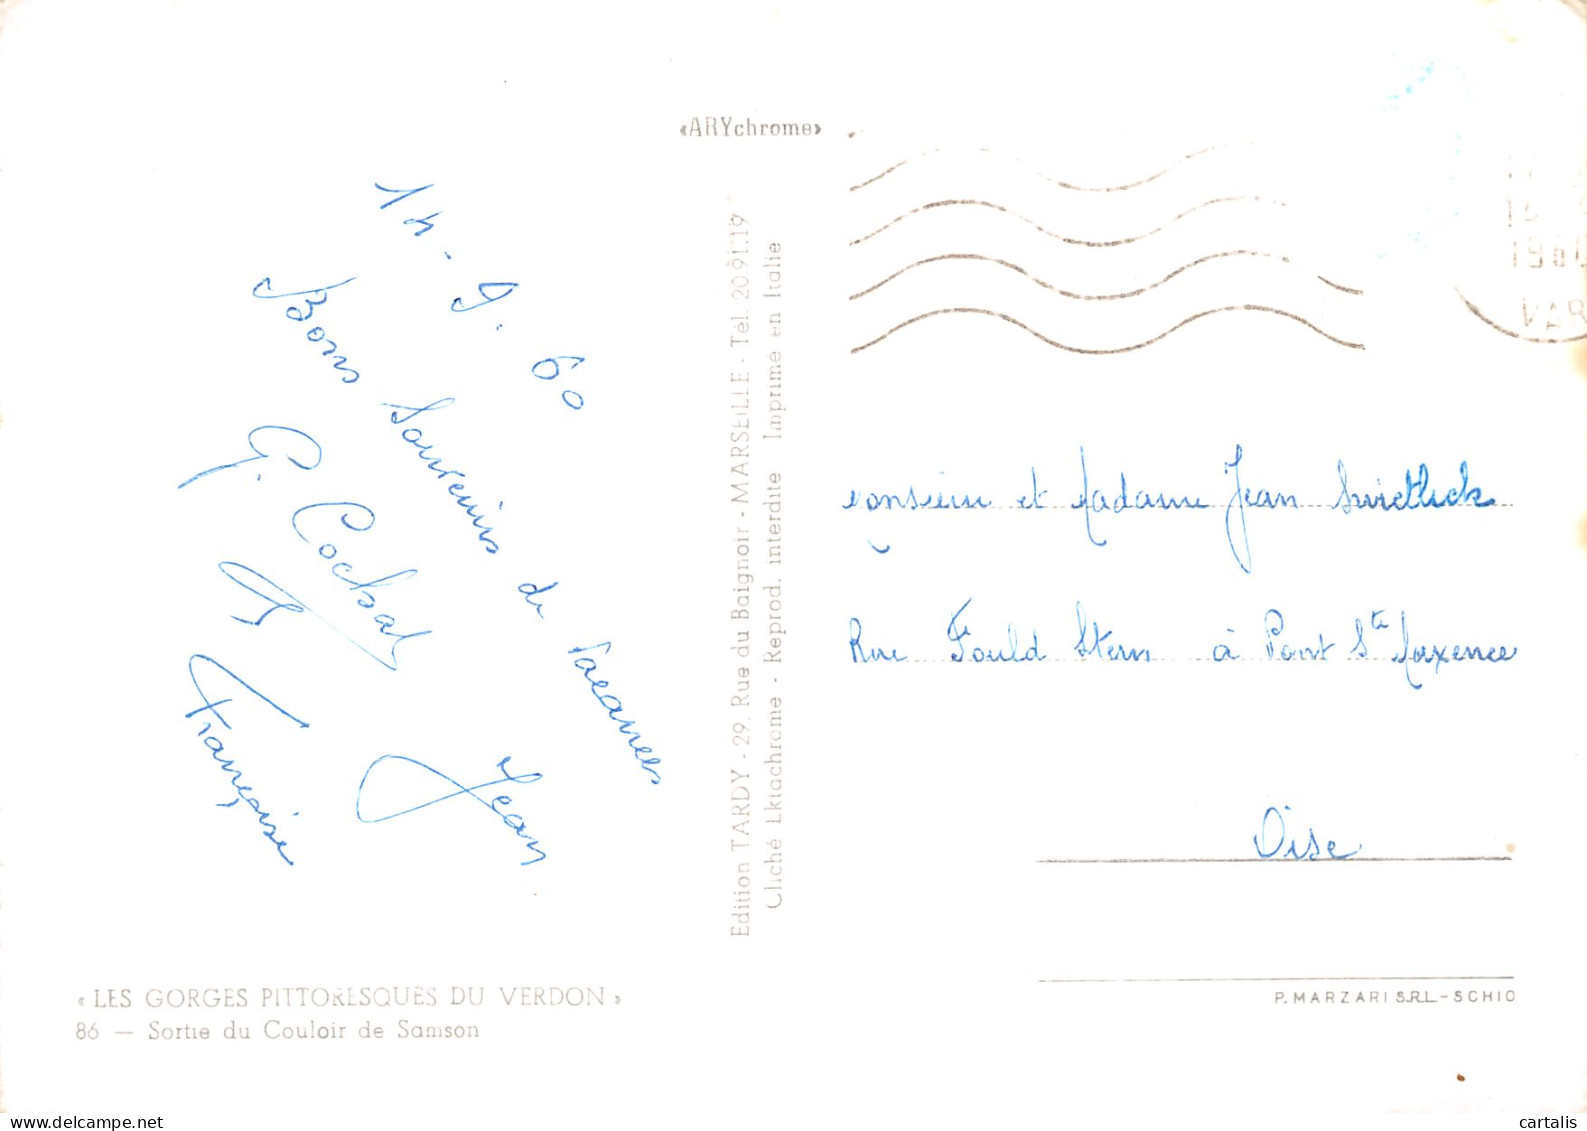 «ARYchrome»
14-9-60
Bons Souvenirs de vacances
G. Cochat
Jean
Françoise
Edition TARDY - 29, Rue du Baignoir - MARSEILLE - Tél. 20 91.19
Cliché Ektachrome - Reprod. interdite Imprimé en Italie
14
1960
VAR
Monsieur et Madame Jean Swietlick
Rue Fould Stern à Pont Ste Maxence
Oise
« LES GORGES PITTORESQUES DU VERDON »
86 — Sortie du Couloir de Samson
P. MARZARI S.R.L - SCHIO
delcampe.net
cartalis